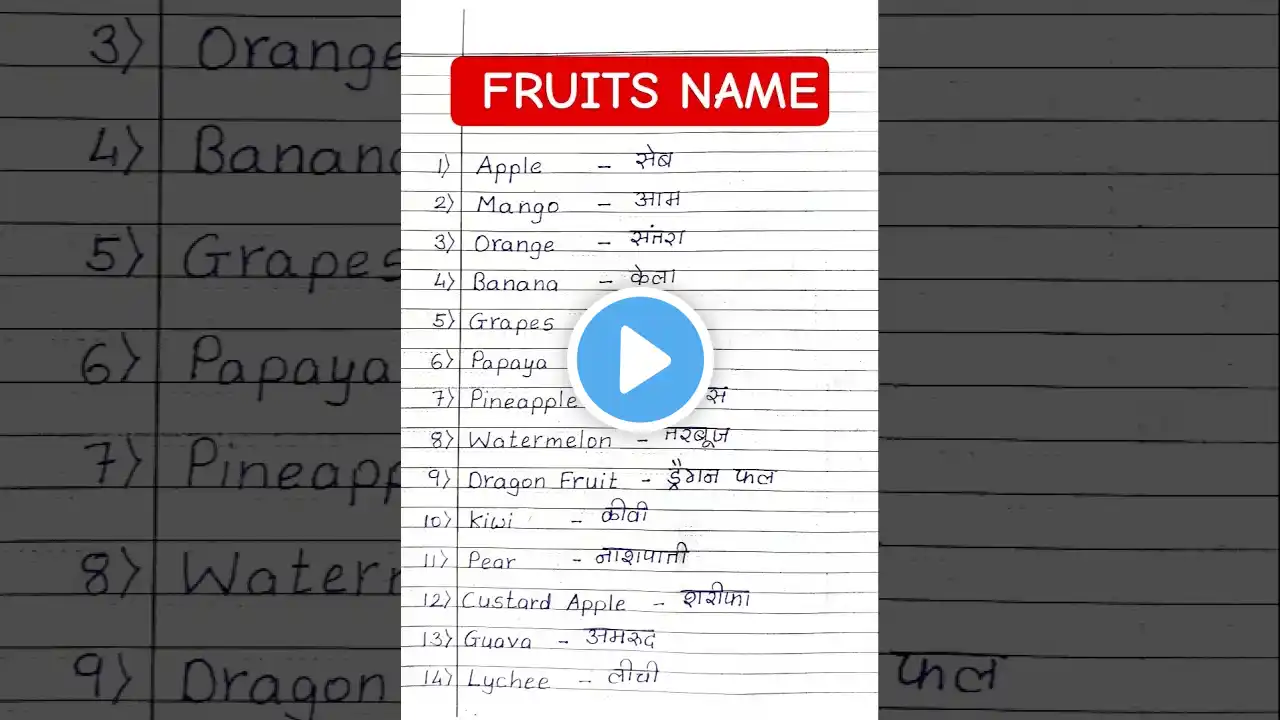 FRUITS NAME
1) Apple - सेब
2) Mango - आम
3) Orange - संतरा
4) Banana - केला
5) Grapes
6) Papaya
7) Pineapple
8) Watermelon - तरबूज
9) Dragon Fruit - ड्रैगन फल
10) Kiwi - कीवी
11) Pear - नाशपाती
12) Custard Apple - शरीफा
13) Guava - अमरूद
14) Lychee - लीची
3) Orange
4) Banana
5) Grapes
6) Papaya
7) Pineapp
8) Water
9) Dragon फल